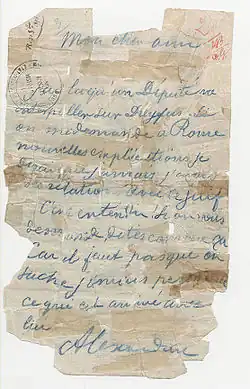 Mon cher ami
J'ai lu qu'un Député va
interpeller sur Dreyfus. Si
on me demande à Rome
nouvelles explications je
dirai que jamais j'avais
des relations avec ce Juif.
C'est entendu. Si on vous
demande dites comme ça
Car il faut pas que on
sache jamais personne
ce qui est arrivé avec
lui
Alexandrine